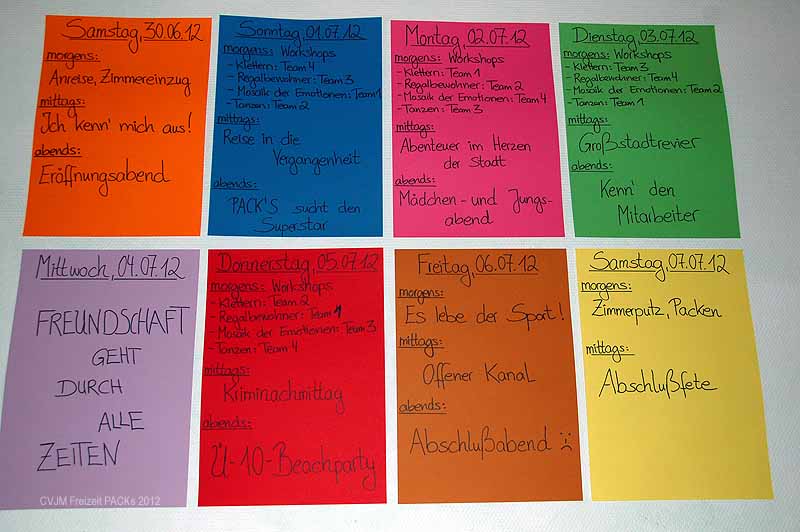 Samstag, 30.06.12
morgens:
Anreise, Zimmereinzug
mittags:
Ich kenn' mich aus!
abends:
Eröffnungsabend
Sonntag, 01.07.12
morgens: Workshops
- Klettern: Team 4
- Regalbewohner: Team 3
- Mosaik der Emotionen: Team 1
- Tanzen: Team 2
mittags:
Reise in die
Vergangenheit
abends:
PACK'S sucht den
Superstar
Montag, 02.07.12
morgens: Workshops
- Klettern: Team 1
- Regalbewohner: Team 2
- Mosaik der Emotionen: Team 4
- Tanzen: Team 3
mittags:
Abenteuer im Herzen
der Stadt
abends:
Mädchen- und Jungs-
abend
Dienstag, 03.07.12
morgens: Workshops
- Klettern: Team 3
- Regalbewohner: Team 4
- Mosaik der Emotionen: Team 2
- Tanzen: Team 1
mittags:
Großstadtrevier
abends:
Kenn' den
Mitarbeiter
Mittwoch, 04.07.12
FREUNDSCHAFT
GEHT
DURCH
ALLE
ZEITEN
Donnerstag, 05.07.12
morgens: Workshops
- Klettern: Team 2
- Regalbewohner: Team 1
- Mosaik der Emotionen: Team 3
- Tanzen: Team 4
mittags:
Kriminachmittag
abends:
Ü-10-Beachparty
Freitag, 06.07.12
morgens:
Es lebe der Sport!
mittags:
Offener Kanal
abends:
Abschlußabend :(
Samstag, 07.07.12
morgens:
Zimmerputz, Packen
mittags:
Abschlußfete
CVJM Freizeit PACKs 2012